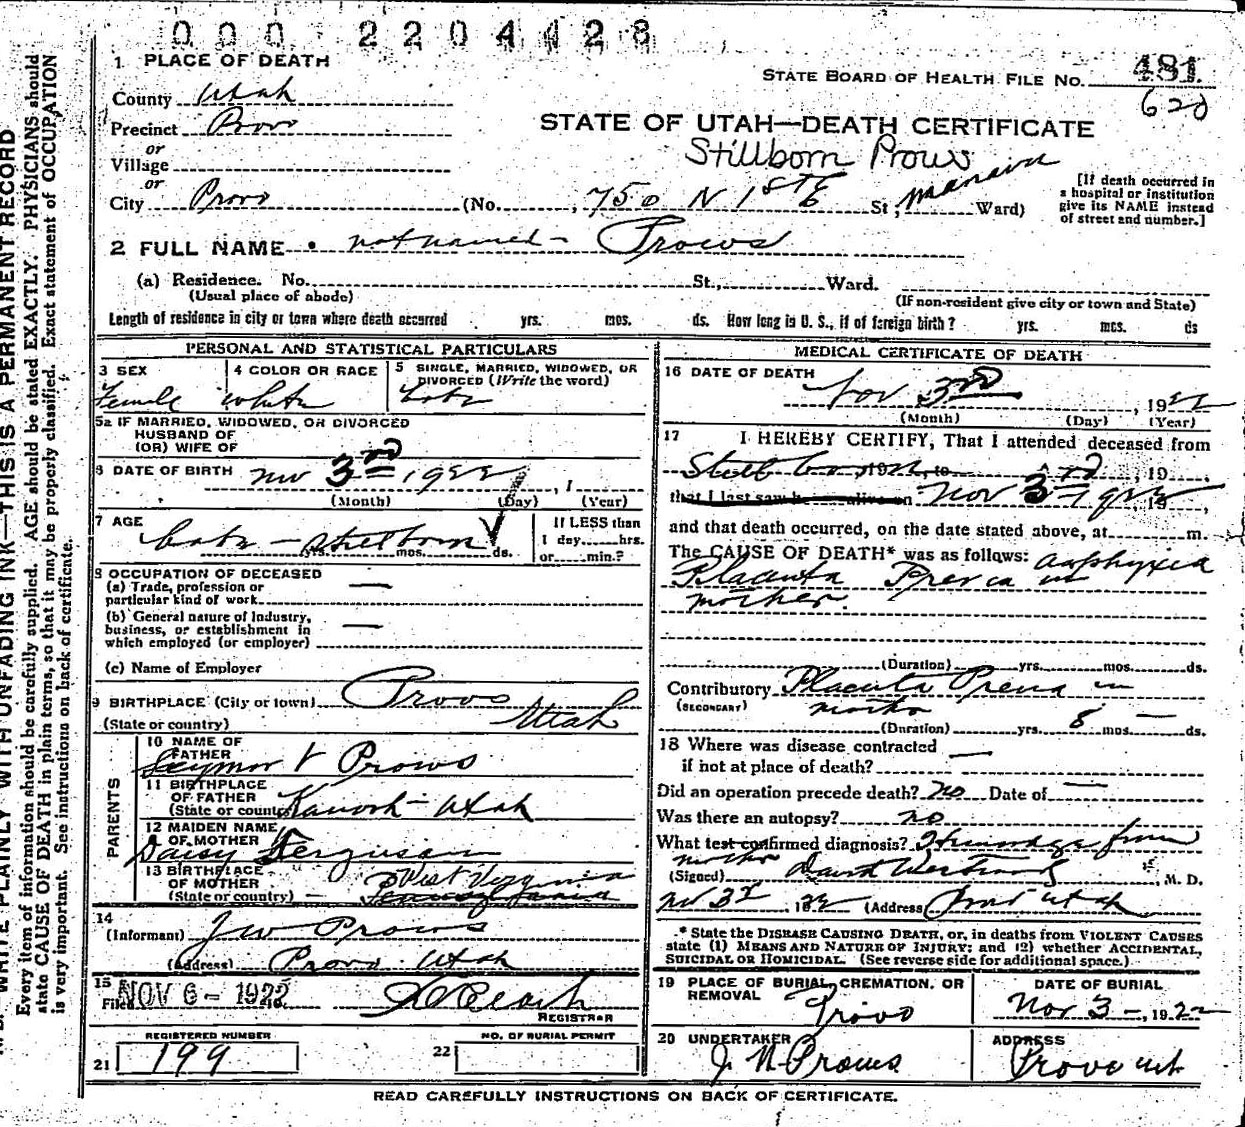 000 2204428
1 PLACE OF DEATH
STATE BOARD OF HEALTH FILE NO. 481
620
County Utah
Precinct Provo
or
Village
or
City Provo (No. 750 N 1st E St, Manavu Ward)
STATE OF UTAH—DEATH CERTIFICATE
Stillborn Prows
[If death occurred in
a hospital or institution
give its NAME instead
of street and number.]
2 FULL NAME not named - Prows
(a) Residence. No. St., Ward.
(Usual place of abode)
(If non-resident give city or town and State)
Length of residence in city or town where death occurred yrs. mos. ds. How long is U. S., if of foreign birth? yrs. mos. ds
PERSONAL AND STATISTICAL PARTICULARS
3 SEX
Female
4 COLOR OR RACE
White
5 SINGLE, MARRIED, WIDOWED, OR
DIVORCED (Write the word)
5a IF MARRIED, WIDOWED, OR DIVORCED
HUSBAND OF
(OR) WIFE OF
6 DATE OF BIRTH Nov 3rd 1922, 1
(Month) (Day) (Year)
7 AGE
stillborn
mos. ds.
If LESS than
1 day hrs.
or min.?
8 OCCUPATION OF DECEASED
(a) Trade, profession or
particular kind of work —
(b) General nature of Industry,
business, or establishment in
which employed (or employer) —
(c) Name of Employer
9 BIRTHPLACE (City or town) Provo
(State or country) Utah
PARENTS
10 NAME OF
FATHER
Seymor V Prows
11 BIRTHPLACE
OF FATHER
(State or country) Kanosh - Utah
12 MAIDEN NAME
OF MOTHER
Daisy Ferguson
13 BIRTHPLACE
OF MOTHER West Virginia
(State or country) — Pennsylvania
14
(Informant) J W Prows
(Address) Provo Utah
15
Filed NOV 6 - 1922
REGISTRAR
REGISTERED NUMBER
21 199
NO. OF BURIAL PERMIT
22
MEDICAL CERTIFICATE OF DEATH
16 DATE OF DEATH
Nov 3rd, 1922
(Month) (Day) (Year)
17 I HEREBY CERTIFY, That I attended deceased from
Stillborn to 3rd, 19
that I last saw h alive on Nov 3 1922, 19,
and that death occurred, on the date stated above, at m.
The CAUSE OF DEATH* was as follows: asphyxia
Placenta Previa in
mother.
(Duration) yrs. mos. ds.
Contributory Placenta Previa in
(SECONDARY) mother
(Duration) yrs. 8 mos. — ds.
18 Where was disease contracted
if not at place of death? —
Did an operation precede death? no Date of —
Was there an autopsy? no
What test confirmed diagnosis? Hemorrhage from
mother
(Signed) David Westwood, M. D.
Nov 3rd, 1922 (Address) Provo Utah
* State the DISEASE CAUSING DEATH, or, in deaths from VIOLENT CAUSES
state (1) MEANS AND NATURE OF INJURY; and (2) whether ACCIDENTAL,
SUICIDAL OR HOMICIDAL. (See reverse side for additional space.)
19 PLACE OF BURIAL, CREMATION, OR
REMOVAL
Provo
DATE OF BURIAL
Nov 3 -, 1922
20 UNDERTAKER
J. N Prows
ADDRESS
Provo Ut
READ CAREFULLY INSTRUCTIONS ON BACK OF CERTIFICATE.
WRITE PLAINLY WITH UNFADING INK—THIS IS A PERMANENT RECORD
Every item of information should be carefully supplied. AGE should be stated EXACTLY. PHYSICIANS should
state CAUSE OF DEATH in plain terms, so that it may be properly classified. Exact statement of OCCUPATION
is very important. See instructions on back of certificate.